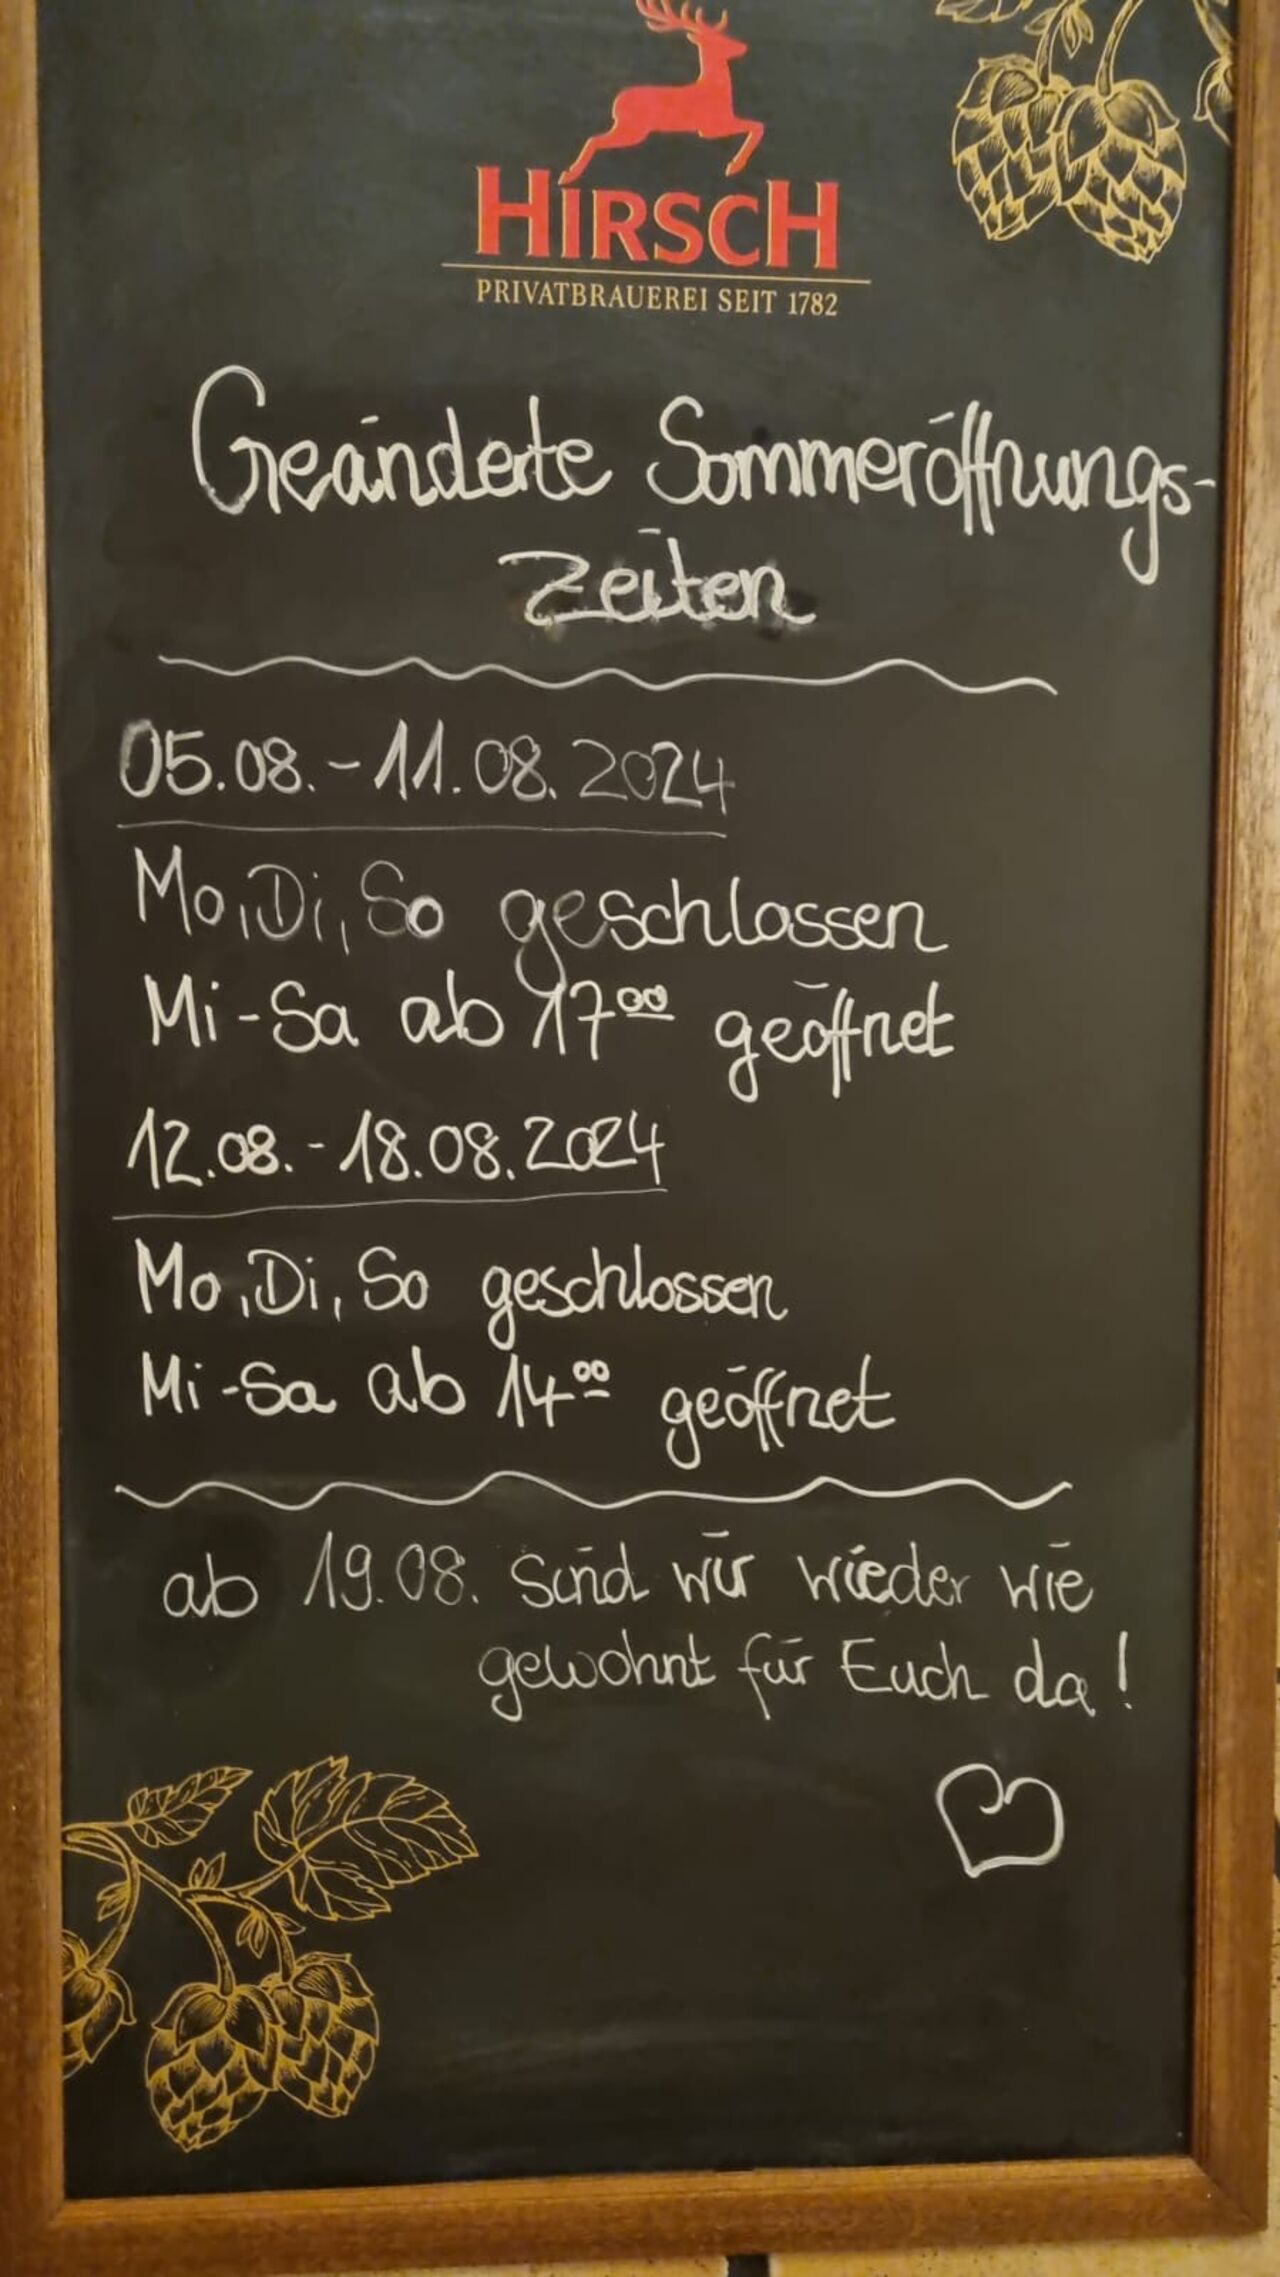 HIRSCH
PRIVATBRAUEREI SEIT 1782
Geänderte Sommeröffnungs-
zeiten
05.08.-11.08.2024
Mo, Di, So geschlossen
Mi-Sa ab 17⁰⁰ geöffnet
12.08.-18.08.2024
Mo, Di, So geschlossen
Mi-Sa ab 14⁰⁰ geöffnet
ab 19.08. sind wir wieder wie
gewohnt für Euch da!